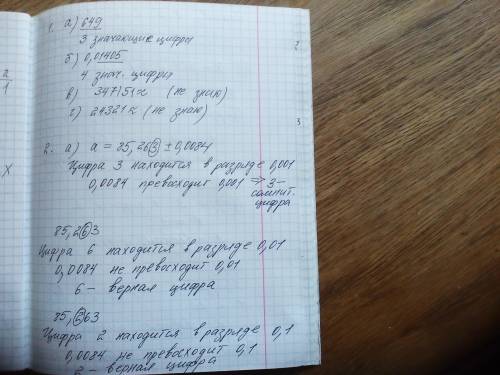 1. а) 649
3 значающие цифры
б) 0,01405
4 знач. цифры
в) 347151х (не знаю)
г) 24321х (не знаю)
2. а) а = 85,263 ± 0,0084
Цифра 3 находится в разряде 0,001
0,0084 превосходит 0,001 => 3 –
сомнит.
цифра
85,263
Цифра 6 находится в разряде 0,01
0,0084 не превосходит 0,01
6 – верная цифра
85,263
Цифра 2 находится в разряде 0,1
0,0084 не превосходит 0,1
2 – верная цифра
2
1
х
2
3